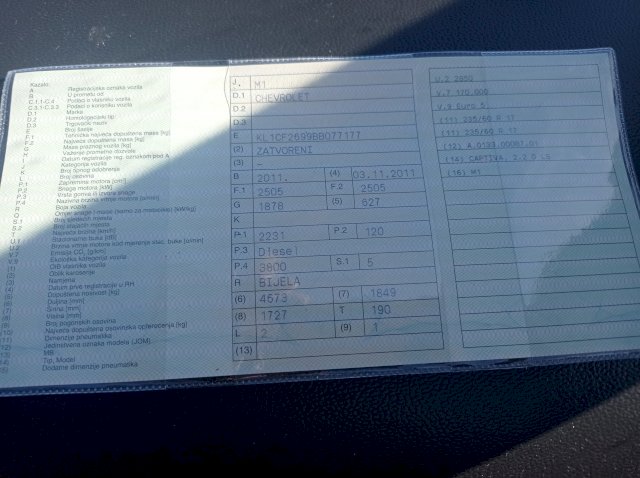 Kazalo:
A Registracijska oznaka vozila
B U prometu od
C.1.1-C.4 Podaci o vlasniku vozila
C.3.1-C.3.3 Podaci o korisniku vozila
D.1 Marka
D.2 Homologacijski tip
D.3 Trgovački naziv
E Broj šasije
F.1 Tehnička najveća dopuštena masa [kg]
F.2 Najveća dopuštena masa [kg]
G Masa praznog vozila [kg]
H Važenje prometne dozvole
I Datum registracije reg. oznakom pod A
J Kategorija vozila
K Broj tipnog odobrenja
L Broj osovina
P.1 Zapremina motora [cm³]
P.2 Snaga motora [kW]
P.3 Vrsta goriva ili izvora snage
P.4 Nazivna brzina vrtnje motora [o/min]
R Boja vozila
Q Omjer snage i mase (samo za motocikle) [kW/kg]
S.1 Broj sjedećih mjesta
S.2 Broj stajaćih mjesta
T Najveća brzina [km/h]
U.1 Stacionarna buka [dB]
U.2 Brzina vrtnje motora kod mjerenja stac. buke [o/min]
V.7 Emisija CO₂ [g/km]
V.9 Ekološka kategorija vozila
(1) OIB vlasnika vozila
(2) Oblik karoserije
(3) Namjena
(4) Datum prve registracije u RH
(5) Dopuštena nosivost [kg]
(6) Duljina [mm]
(7) Širina [mm]
(8) Visina [mm]
(9) Broj pogonskih osovina
(10) Najveća dopuštena osovinska opterećenja [kg]
(11) Dimenzije pneumatika
(12) Jedinstvena oznaka modela (JOM)
(13) MB
(14) Tip, Model
Dodatne dimenzije pneumatika
J. M1
D.1 CHEVROLET
D.2
D.3
E KL1CF2699BB077177
(2) ZATVORENI
(3) –
B 2011. (4) 03.11.2011
F.1 2505 F.2 2505
G 1878 (5) 627
K
P.1 2231 P.2 120
P.3 Diesel
P.4 3800 S.1 5
R BIJELA
(6) 4673 (7) 1849
(8) 1727 T 190
L 2 (9) 1
(13)
U.2 2850
V.7 170.000
V.9 Euro 5
(11) 235/60 R 17
(11) 235/60 R 17
(12) A.0133.00081.01
(14) CAPTIVA, 2.2 D LS
(16) M1